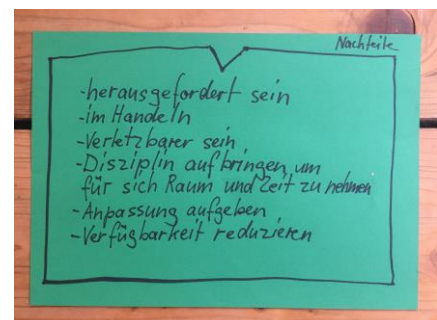 Nachteile
-herausgefordert sein
-im Handeln
-Verletzbarer sein
-Disziplin aufbringen, um
für sich Raum und Zeit zu nehmen
-Anpassung aufgeben
-Verfügbarkeit reduzieren